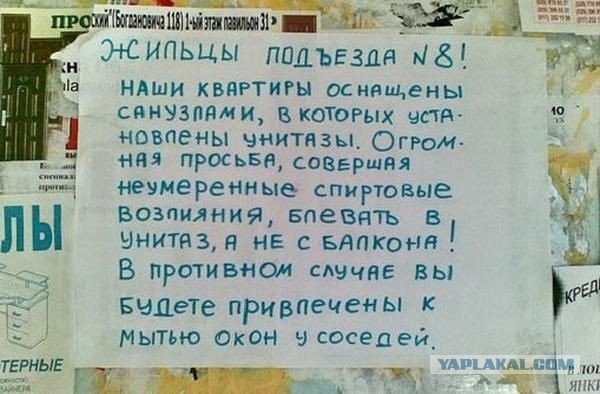 (Богдановича 118) 1-ый этаж павильон 31
ЖИЛЬЦЫ ПОДЪЕЗДА N8!
НАШИ КВАРТИРЫ ОСНАЩЕНЫ
САНУЗЛАМИ, В КОТОРЫХ УСТА-
НОВЛЕНЫ УНИТАЗЫ. ОГРОМ-
НАЯ ПРОСЬБА, СОВЕРШАЯ
НЕУМЕРЕННЫЕ СПИРТОВЫЕ
ВОЗЛИЯНИЯ, БЛЕВАТЬ В
УНИТАЗ, А НЕ С БАЛКОНА!
В ПРОТИВНОМ СЛУЧАЕ ВЫ
БУДЕТЕ ПРИВЛЕЧЕНЫ К
МЫТЬЮ ОКОН У СОСЕДЕЙ.
ЛЫ
ТЕРНЫЕ
КРЕД
YAPLAKAL.COM